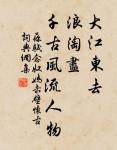 大江東去
浪淘盡
千古風流人物
蘇軾念奴嬌赤壁懷古
詞典網集